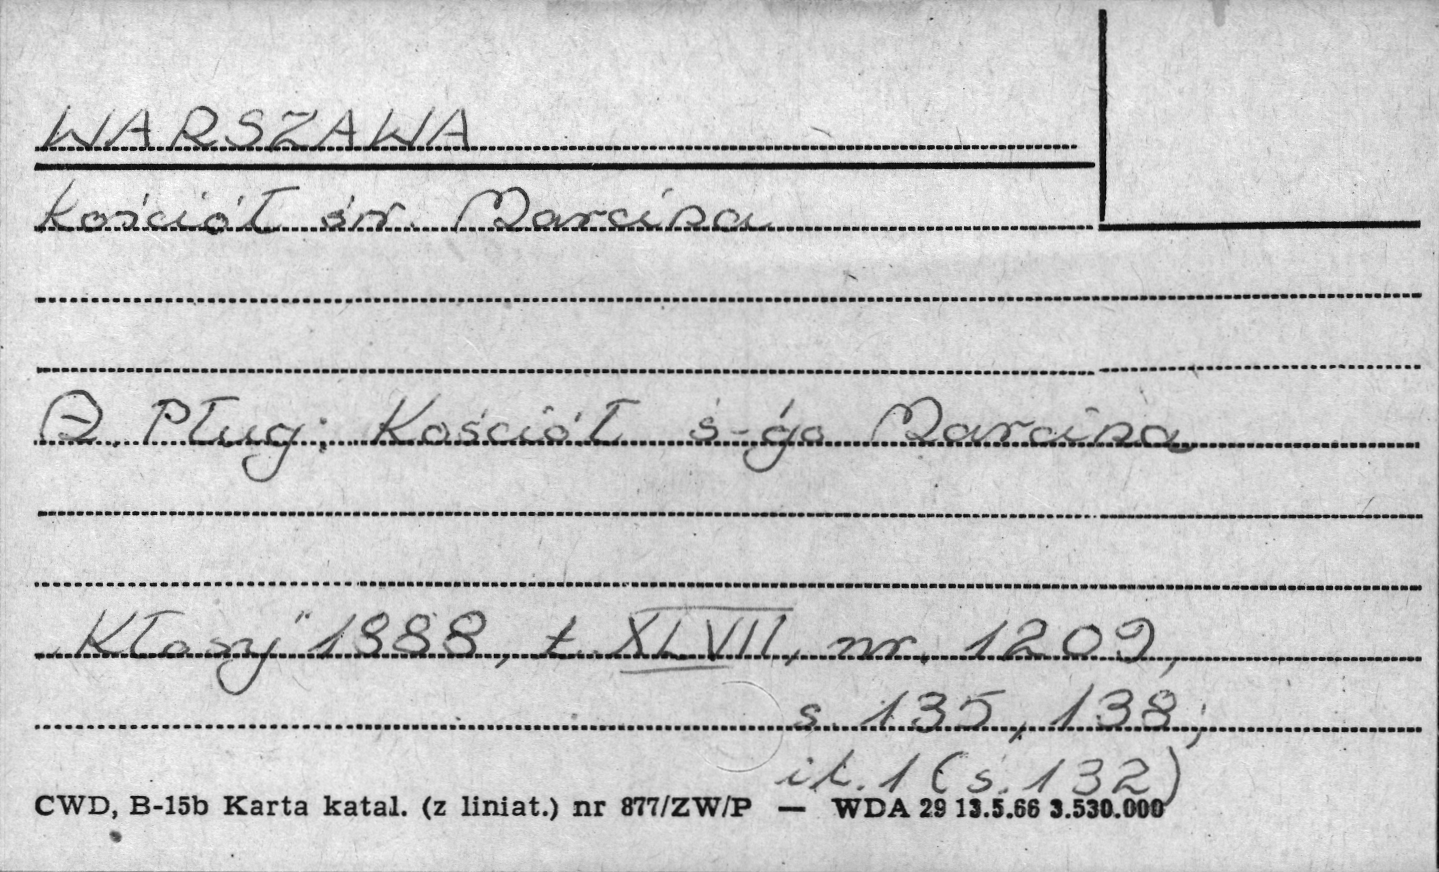 WARSZAWA
Kościół św. Marcina
A. Pług: Kościół ś-go Marcina
„Kłosy" 1888, t. XLVII, nr. 1209,
s. 135, 138;
il. 1 (s. 132)
CWD, B-15b Karta katal. (z liniat.) nr 877/ZW/P — WDA 29 13.5.66 3.530.000